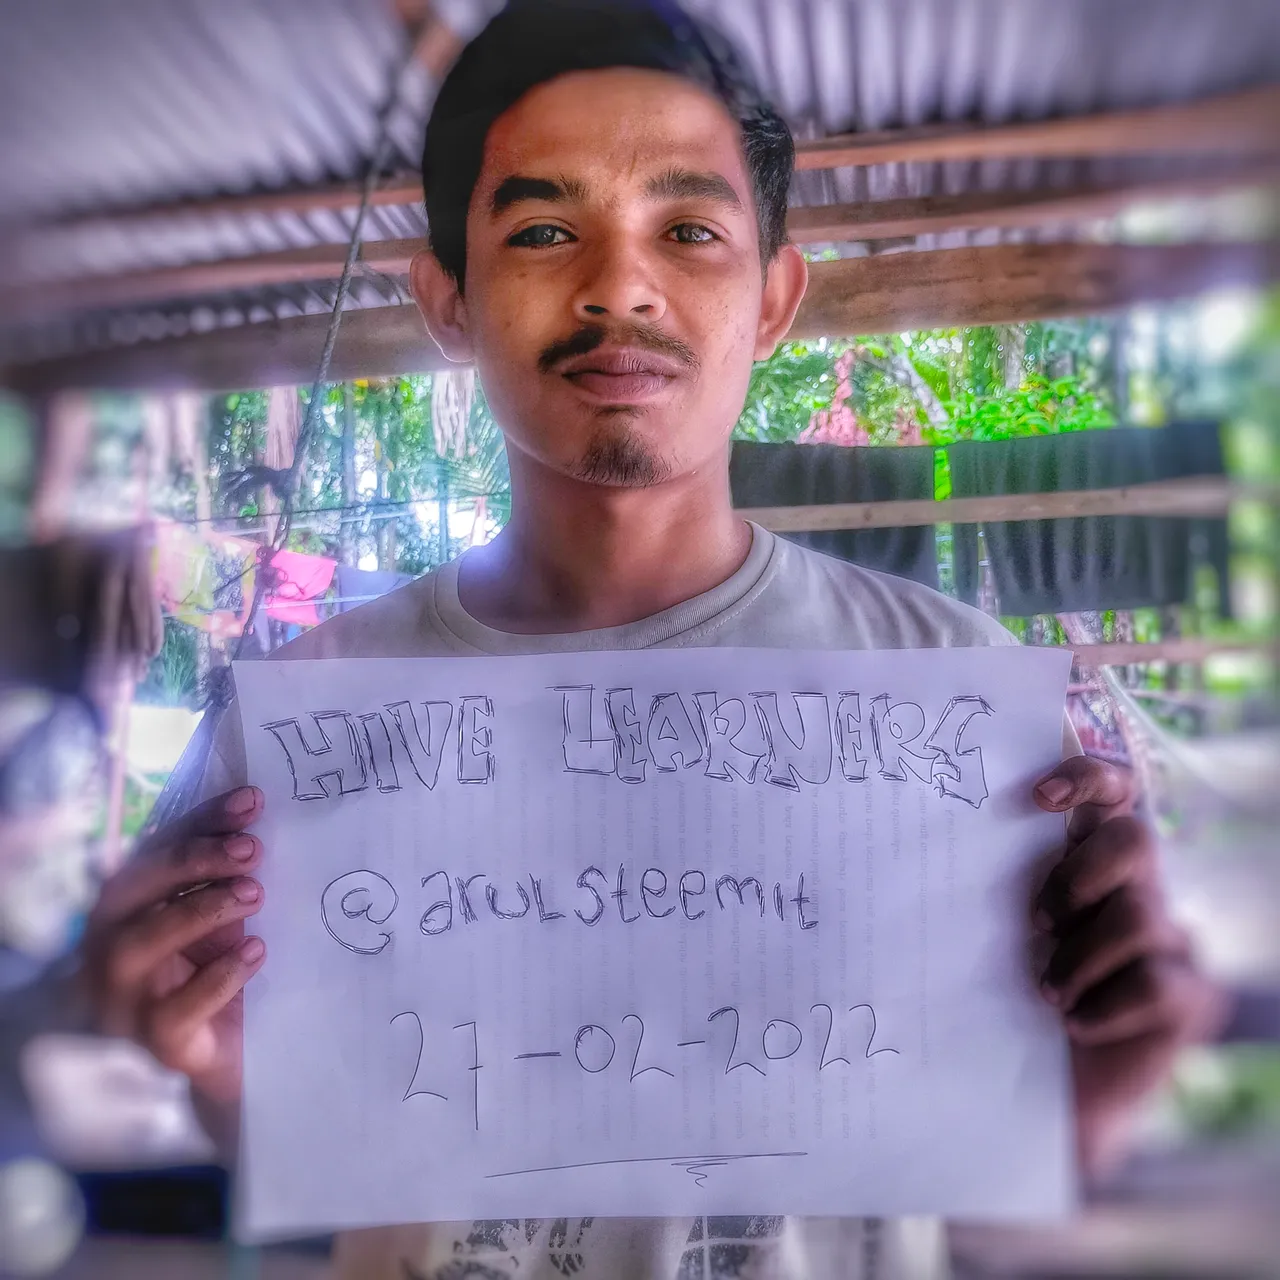 HIVE LEARNERS
@arulsteemit
27-02-2022